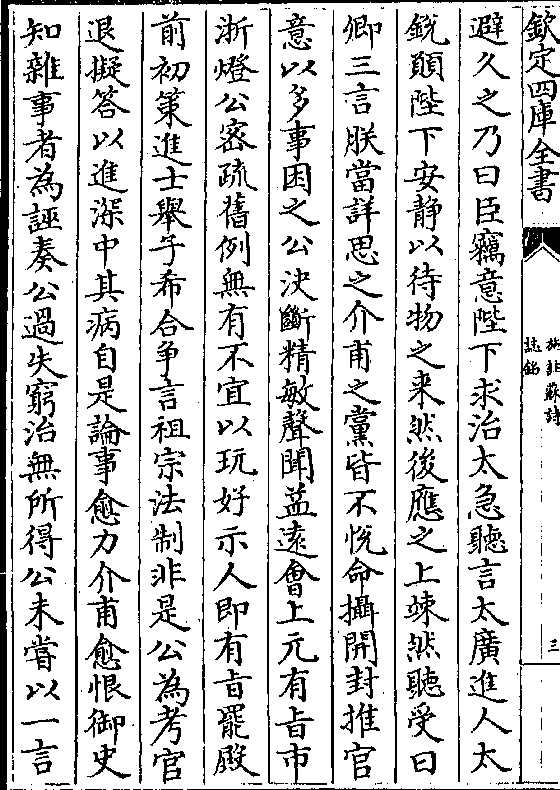 欽定四庫全書
施註蘇詩
誌銘
三
避久之乃曰臣竊意陛下求治太急聽言太廣進人太
銳願陛下安静以待物之来然後應之上竦然聽受曰
卿三言朕當詳思之介甫之黨皆不恱命攝開封推官
意以多事困之公决斷精敏聲聞益逺會上元有旨市
浙燈公密疏舊例無有不宜以玩好示人即有旨罷殿
前初策進士舉子希合争言祖宗法制非是公為考官
退擬答以進深中其病自是論事愈力介甫愈恨御史
知雜事者為誣奏公過失窮治無所得公未嘗以一言